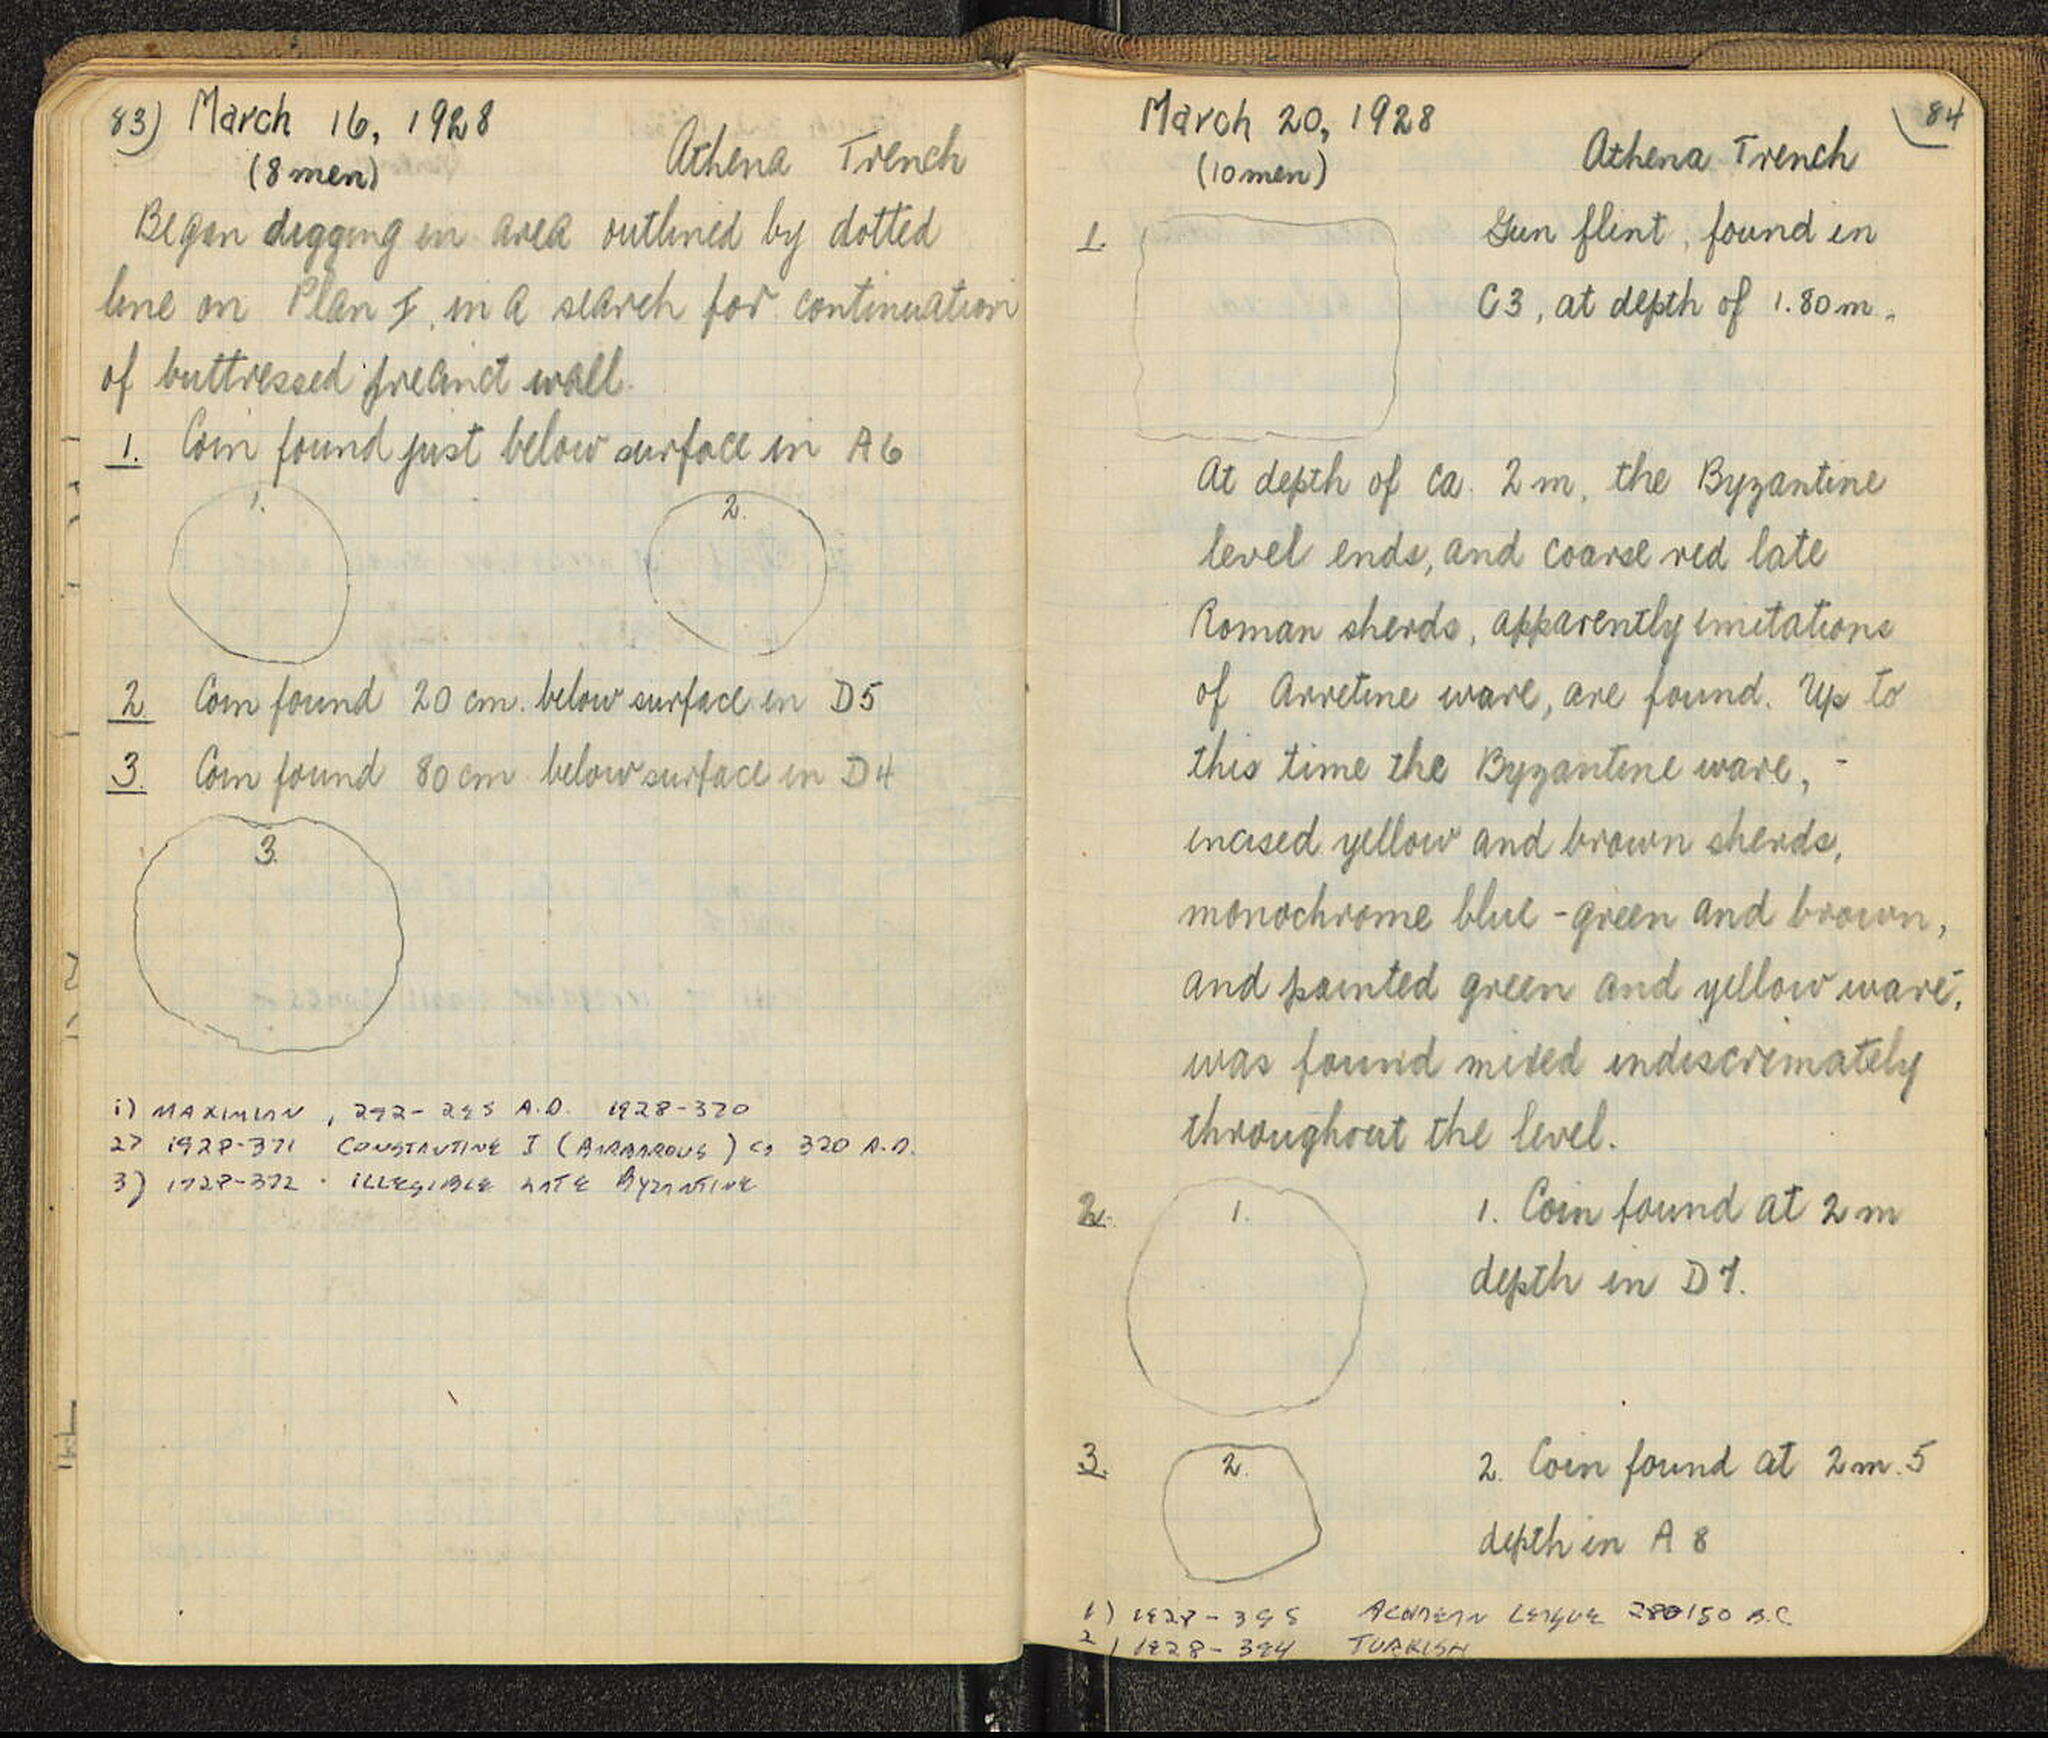 83) March 16, 1928
(8 men)
Athena Trench
Began digging in area outlined by dotted
line on Plan I, in a search for continuation
of buttressed precinct wall.
1. Coin found just below surface in A6
1. 2.
2. Coin found 20 cm. below surface in D5
3. Coin found 80 cm below surface in D4
3.
1) MAXIMIAN, 292-295 A.D. 1928-370
2) 1928-371 CONSTANTINE I (BARBAROUS) ca 320 A.D.
3) 1928-372 . ILLEGIBLE LATE BYZANTINE
March 20, 1928
84
(10 men)
Athena Trench
1. Gun flint, found in
C3, at depth of 1.80 m.
At depth of ca. 2 m, the Byzantine
level ends, and coarse red late
Roman sherds, apparently imitations
of Arretine ware, are found. Up to
this time the Byzantine ware, -
incised yellow and brown sherds,
monochrome blue-green and brown,
and painted green and yellow ware,
was found mixed indiscrimately
throughout the level.
2. 1. 1. Coin found at 2 m
depth in D7.
3. 2. 2. Coin found at 2m.5
depth in A 8
1) 1928-395 ACHAEAN LEAGUE 150 B.C
2) 1928-394 TURKISH